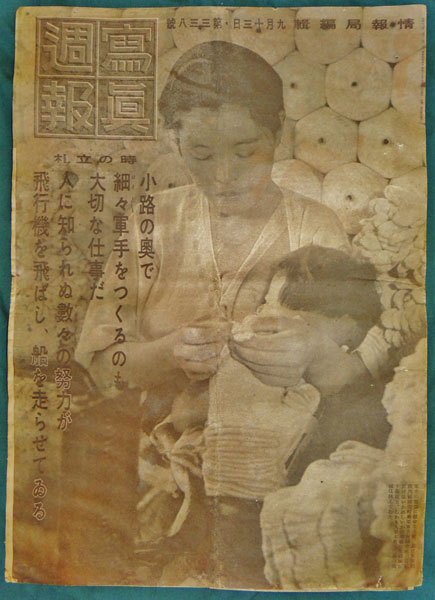 情報局編輯 九月十三日・第三三八號
寫眞
週報
時の立札
小路の奥で
細々軍手をつくるのも
大切な仕事だ
人に知られぬ數々の努力が
飛行機を飛ばし、船を走らせてゐる